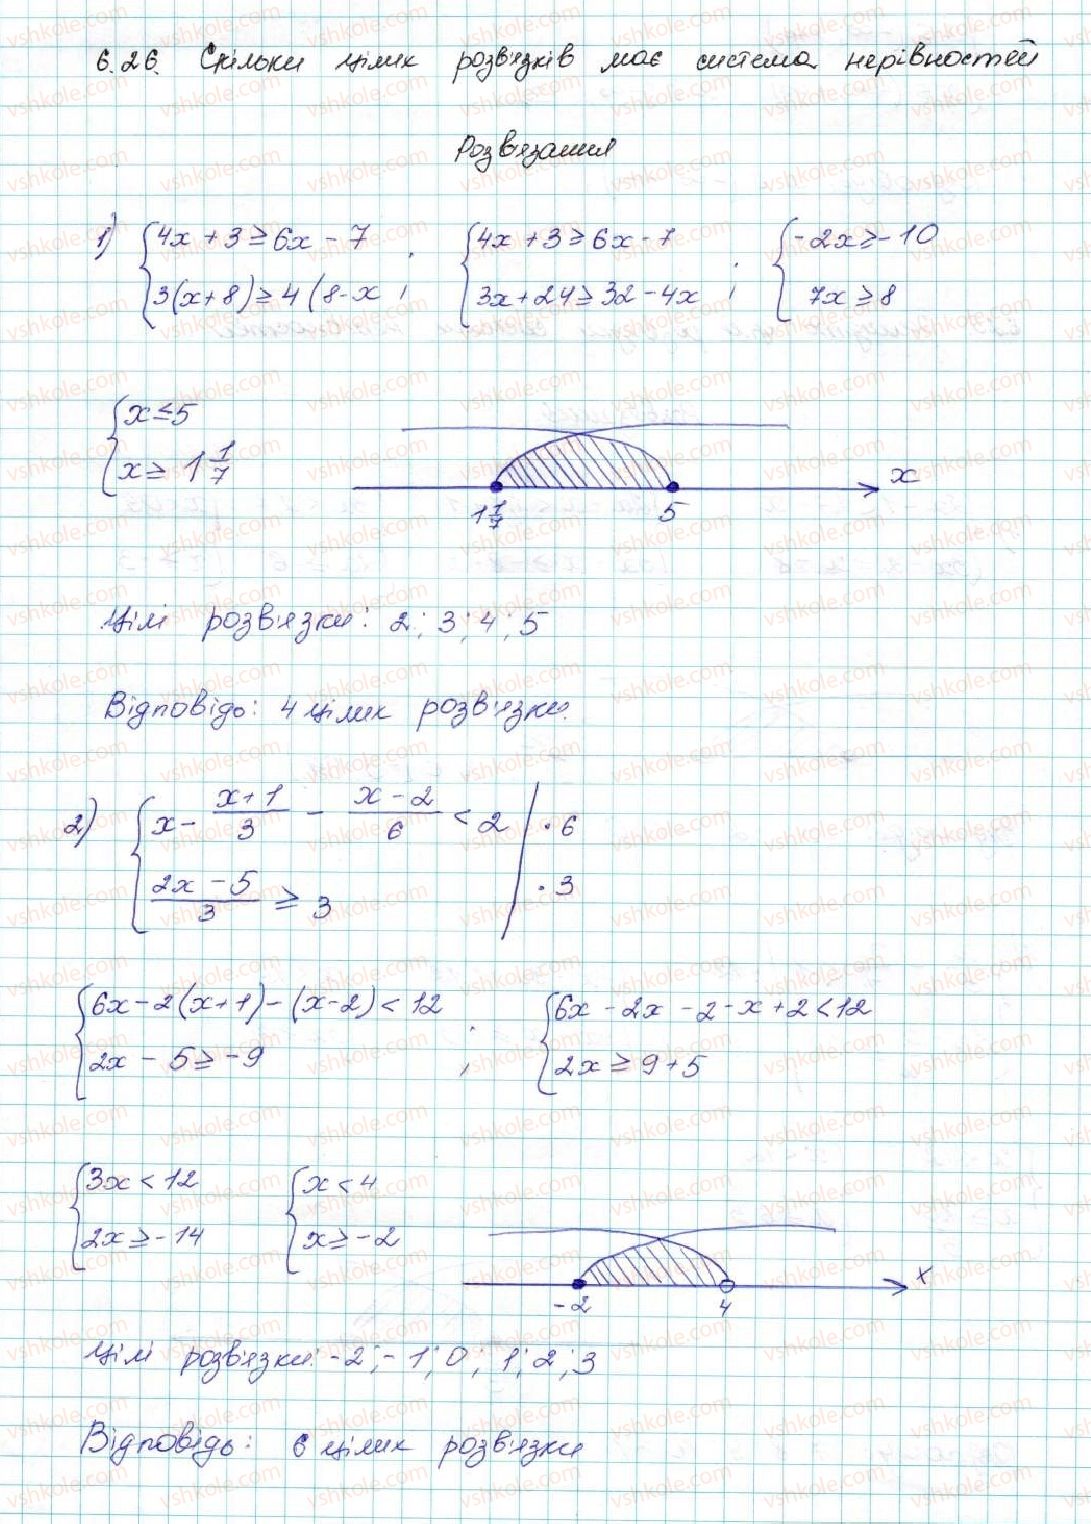 6.26. Скільки цілих розв'язків має система нерівностей
Розв'язання
1) {4x + 3 ≥ 6x - 7 ; {4x + 3 ≥ 6x - 7 ; {-2x ≥ -10
3(x+8) ≥ 4(8-x 3x+24 ≥ 32-4x 7x ≥ 8
{x ≤ 5
x ≥ 1 1/7
x
1 1/7 5
Цілі розв'язки: 2; 3; 4; 5
Відповідь: 4 цілих розв'язки.
2) {x - (x+1)/3 - (x-2)/6 < 2 | · 6
(2x-5)/3 ≥ 3 · 3
{6x-2(x+1)-(x-2) < 12 ; {6x - 2x - 2 - x + 2 < 12
2x - 5 ≥ -9 2x ≥ 9+5
{3x < 12 {x < 4
2x ≥ -14 x ≥ -2
x
-2 4
Цілі розв'язки: -2; -1; 0; 1; 2; 3
Відповідь: 6 цілих розв'язки